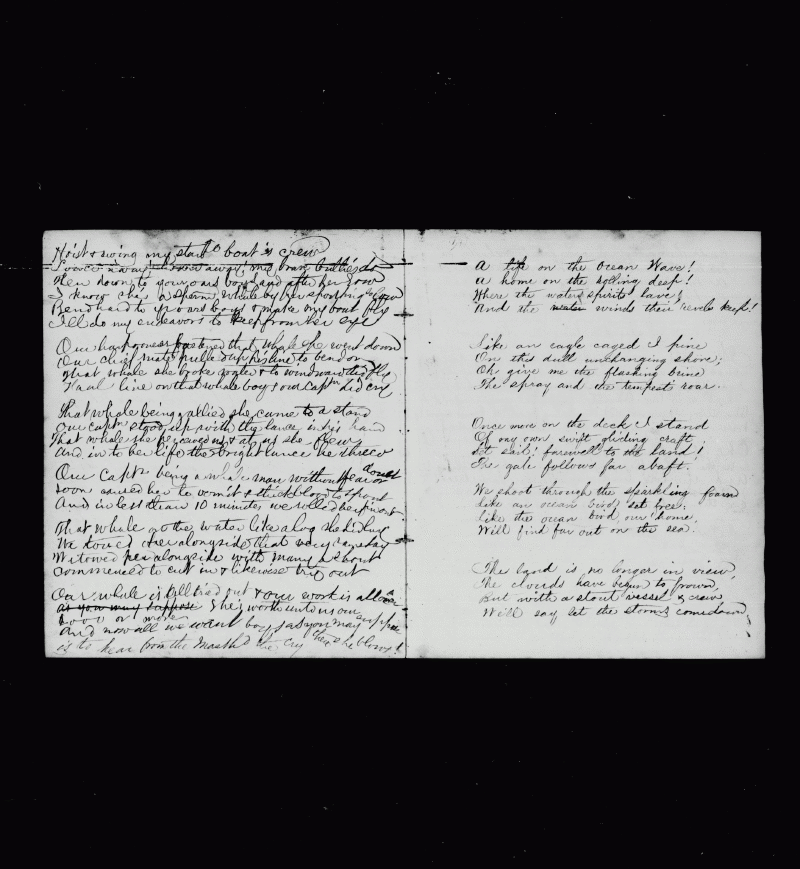 Hoist & swing my starb boat is crew
Lower away lower away, my brave bullies do
Then down to your oars boys and after her row
I know she's a sperm whale by her spouting so low
Bend hard to yo oars boys & make my boat fly
I'll do my endeavors to keep from her eye
Our harponess fastened that whale he went down
Our chief mate pulled up his line to bend on
That whale she broke water & to windward did fly
Haul line on that whale boys our captn did cry
That whale being rallied she came to a stand
Our captn stood up with the lance in his hand
That whale she pierced at us she flew
And in to her life the bright lance he threw
Our Captn being a whale man without fear or doubt
soon caused her to vomit & thick blood to spout
And in less than 10 minutes we rolled her fin out
That whale on the water like a log she did lay
We towed her alongside that very same day
We towed her alongside with many a shout
Commenced to cut in & likewise try out
Our whale is all tried out & our work is all o'er
as you may suppose She's worth unto us our
1000 or more
And now all we want boys as you may suppose
is to hear from the Masthd the cry There she blows!
A life on the Ocean Wave!
A home on the rolling deep!
Where the waters spirits lave!
And the water winds their revels keep!
Like an eagle caged I pine
On this dull unchanging shore;
Oh give me the flashing brine
The spray and the tempests roar.
Once more on the deck I stand
Of my own swift gliding craft;
Set sail! farewell to the land!
The gale follows far abaft.
We shoot through the sparkling foam
Like an ocean bird set free;
Like the ocean bird, our home,
Will find far out on the sea.
The land is no longer in view,
The clouds have begun to frown,
But with a stout vessel & crew
Will say let the storms come down,